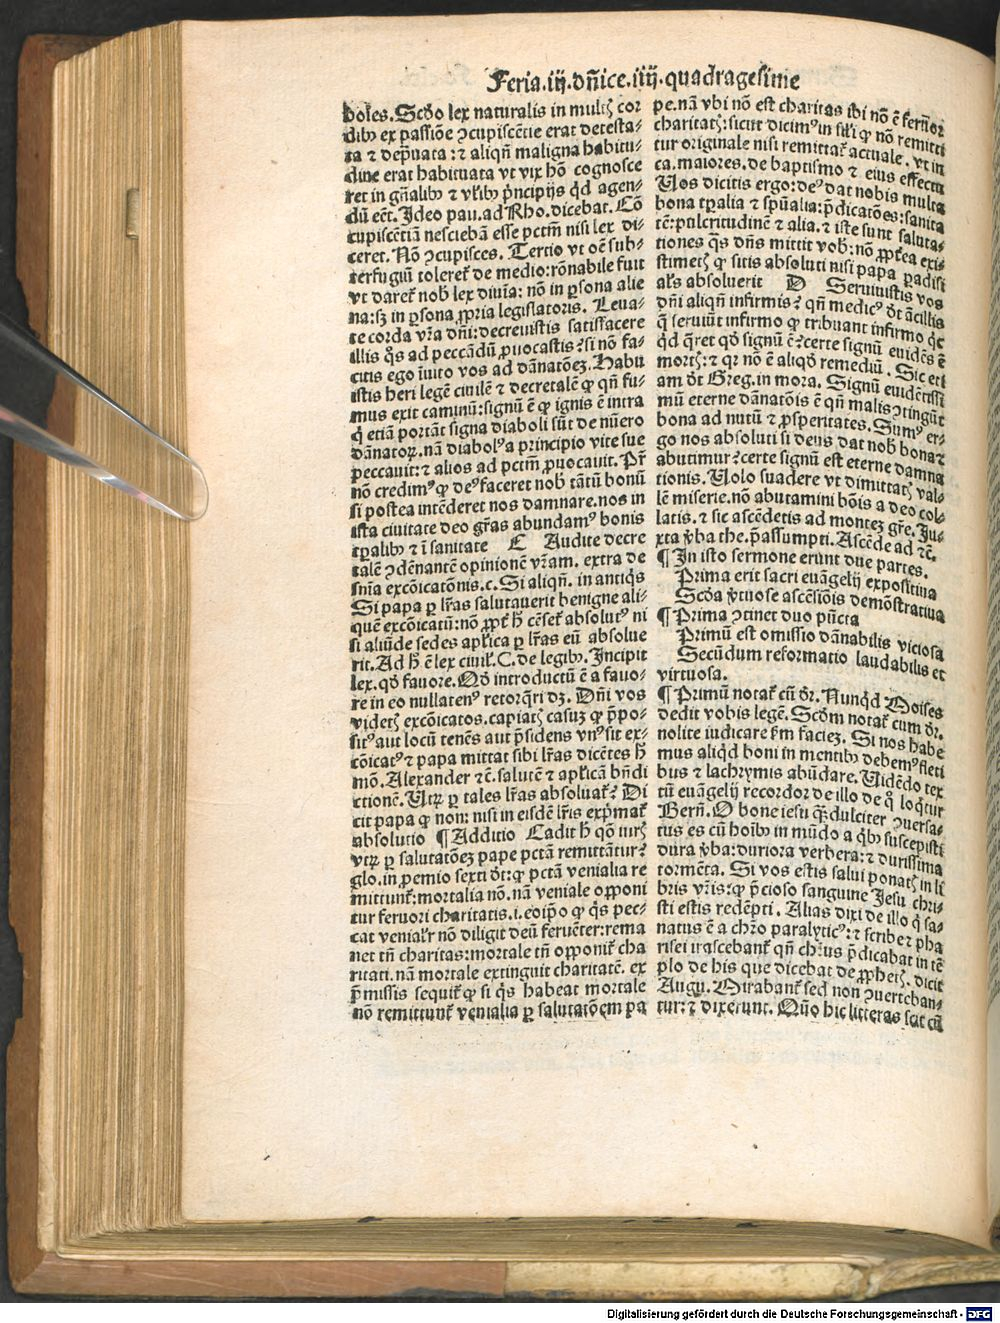 Feria.iij.dñice.iiij.quadragesime
boles. Scđo lex naturalis in multꝭ cor
dibꝰ ex passiōe ꝯcupiscētie erat detesta-
ta ⁊ dep̄uata: ⁊ aliqñ maligna habitu-
dine erat habituata vt vix hō cognosce
ret in gñalibꝰ ⁊ vl̕ibꝰ p̄ncipijs qđ agen-
dū eēt. Ideo pau. ad Rho. dicebat. Cō
cupiscētiā nesciebā esse pctm̄ nisi lex di-
ceret. Nō ꝯcupisces. Tertio vt oē sub-
terfugiū tolleret̕ de medio: rōnabile fuit
vt daret̕ nob̕ lex diuīa: nō in ꝑsona alie
na: sꝫ in ꝑsona ꝓpria legislatoris. Leua-
te corda vr̄a dñi: decreuistis satisfacere
illis q̄s ad peccādū ꝓuocastis? si nō fa-
citis ego īuito vos ad dānatōeꝫ. Habu
istis heri legē ciuilē ⁊ decretalē ꝙ qñ fu-
mus exit caminū: signū ē ꝙ ignis ē intra
q̇ etiā portāt signa diaboli sūt de nūero
dānatoꝝ. nā diabolꝰ a principio vite sue
peccauit: ⁊ alios ad pctm̄ ꝓuocauit. Pr̄
nō credimꝰ ꝙ deꝰ faceret nob̕ tātū bonū
si postea intēderet nos damnare. nos in
ista ciuitate deo gr̄as abundamꝰ bonis
tꝑalibꝰ ⁊ ī sanitate C Audite decre
talē ꝯdēnantē opinionē vr̄am. extra de
snīa excōicatōnis. c. Si aliqñ. in antiq̄s
Si papa ꝑ lr̄as salutauerit benigne ali-
quē excōicatū: nō ꝓpt̕ h̄ cēset̕ absolutꝰ ni
si aliūde sedes apl̕ica ꝑ lr̄as eū absolue
rit. Ad h̄ ē lex ciuil̕. C. de legibꝰ. Incipit
lex. qđ fauore. Qđ introductū ē a fauo-
re in eo nullatenꝰ retorq̄ri dꝫ. Dñi vos
videtꝭ excōicatos. capiatꝭ casuꝫ ꝙ p̄po-
sitꝰ aut locū tenēs aut p̄sidens vnꝰ sit ex-
cōicatꝰ ⁊ papa mittat sibi lr̄as dicētes h̄
mō. Alexander ⁊c̄. salutē ⁊ apl̕icā bn̄di
ctionē. Utꝝ ꝑ tales lr̄as absoluat̕? Di
cit papa ꝙ non: nisi in eisdē lr̄is exp̄mat̕
absolutio ¶ Additio Cadit h̄ qō iurꝭ
vtꝝ ꝑ salutatōeꝫ pape pctā remittātur?
glo. in ꝓemio sexti dt̄: ꝙ pctā venialia re
mittunt̕: mortalia nō. nā veniale opponi
tur feruori charitatis. i. eoip̄o ꝙ q̄s pec-
cat venialr̄ nō diligit deū feruēter: rema
net tñ charitas: mortale tñ opponit̕ cha
ritati. nā mortale extinguit charitatē. ex
p̄missis sequit̕ ꝙ si q̄s habeat mortale
nō remittunt̕ venialia ꝑ salutatōem pa
pe. nā vbi nō est charitas ibi nō ē feruor
charitatꝭ: sicut dicimꝰ in sil̕i ꝙ nō remitti
tur originale nisi remittat̕ actuale. vt in
ca. maiores. de baptismo ⁊ eius effectu
Uos dicitis ergo: deꝰ dat nobis multa
bona tꝑalia ⁊ spūalia: p̄dicatōes: sanita
tē: pulcritudinē ⁊ alia. ⁊ iste sunt saluta-
tiones q̄s dñs mittit vob̕: nō ꝓpt̕ea exi-
stimetꝭ ꝙ sitis absoluti nisi papa ꝑadisi
al̕r absoluerit D Seruiuistis vos
dñi aliqñ infirmis? qñ medicꝰ dt̄ ācillis
q̄ seruiūt infirmo ꝙ tribuant infirmo q̇c
qđ q̄ret qđ signū ē? certe signū euidēs ē
mortꝭ: ⁊ qꝛ nō ē aliqđ remediū. Sic eti
am dt̄ Greg. in mora. Signū euidētissi
mū eterne dānatōis ē qñ malis ꝯtingūt
bona ad nutū ⁊ ꝓsperitates. Sumꝰ er-
go nos absoluti si deus dat nob̕ bona ⁊
abutimur? certe signū est eterne damna
tionis. Uolo suadere vt dimittatꝭ val-
lē miserie. nō abutamini bōis a deo col-
latis. ⁊ sic ascēdetis ad monteꝫ gr̄e. Ju-
xta v̄ba the. p̄assumpti. Ascēde ad ⁊c̄.
¶ In isto sermone erunt due partes.
Prima erit sacri euāgelij expositiua
Scđa v̄tuose ascēsiōis demōstratiua
¶ Prima ꝯtinet duo pūcta
Primū est omissio dānabilis viciosa
Secūdum reformatio laudabilis et
virtuosa.
¶ Primū notat̕ cū dr̄. Nunqđ Moises
dedit vobis legē. Scđm notat̕ cum dr̄.
nolite iudicare km̄ facieꝫ. Si nos habe
mus aliqđ boni in mentibꝰ debemꝰ fleti
bus ⁊ lachrymis abūdare. Uidēdo tex
tū euāgelij recordor de illo de q̊ loq̄tur
Bern̄. O bone iesu q̄ꝫ dulciter ꝯuersa-
tus es cū hoībꝰ in mūdo a q̇bꝰ suscepisti
dura v̄ba: duriora verbera: ⁊ durissima
tormēta. Si vos estis salui ponatꝭ in li
bris vr̄is: ꝙ p̄cioso sanguine Jesu chri-
sti estis redēpti. Alias dixi de illo q̇ sa-
natus ē a chr̄o paralyticꝰ: ⁊ scribe ⁊ pha
risei irascebant̕ qñ chr̄us p̄dicabat in tē
plo de his que dicebat de ꝓphetꝭ. dicit
Augu. Mirabant̕ sed non ꝯuerteban-
tur: ⁊ dixerunt. Quō hic litteras scit cū
Digitalisierung gefördert durch die Deutsche Forschungsgemeinschaft - DFG